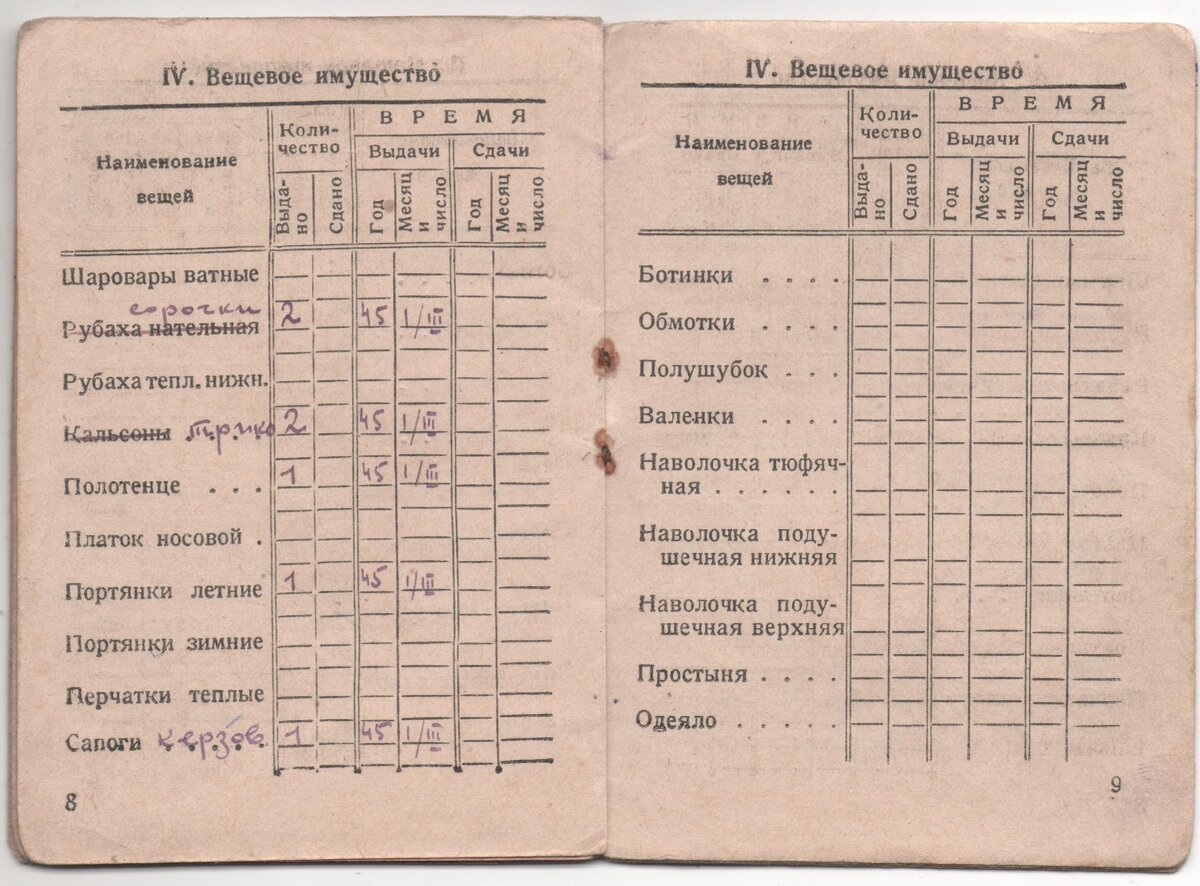 IV. Вещевое имущество
Наименование
вещей
Коли-
чество
ВРЕМЯ
Выдачи
Сдачи
Выда-
но
Сдано
Год
Месяц
и
число
Год
Месяц
и
число
Шаровары ватные
сорочки
Рубаха нательная 2 45 1/III
Рубаха тепл. нижн.
Кальсоны трико 2 45 1/III
Полотенце . . . 1 45 1/III
Платок носовой .
Портянки летние 1 45 1/III
Портянки зимние
Перчатки теплые
Сапоги керзов. 1 45 1/III
8
IV. Вещевое имущество
Наименование
вещей
Коли-
чество
ВРЕМЯ
Выдачи
Сдачи
Выда-
но
Сдано
Год
Месяц
и
число
Год
Месяц
и
число
Ботинки . . . .
Обмотки . . . .
Полушубок . . .
Валенки . . . .
Наволочка тюфяч-
ная . . . . . .
Наволочка поду-
шечная нижняя
Наволочка поду-
шечная верхняя
Простыня . . . .
Одеяло . . . . .
9